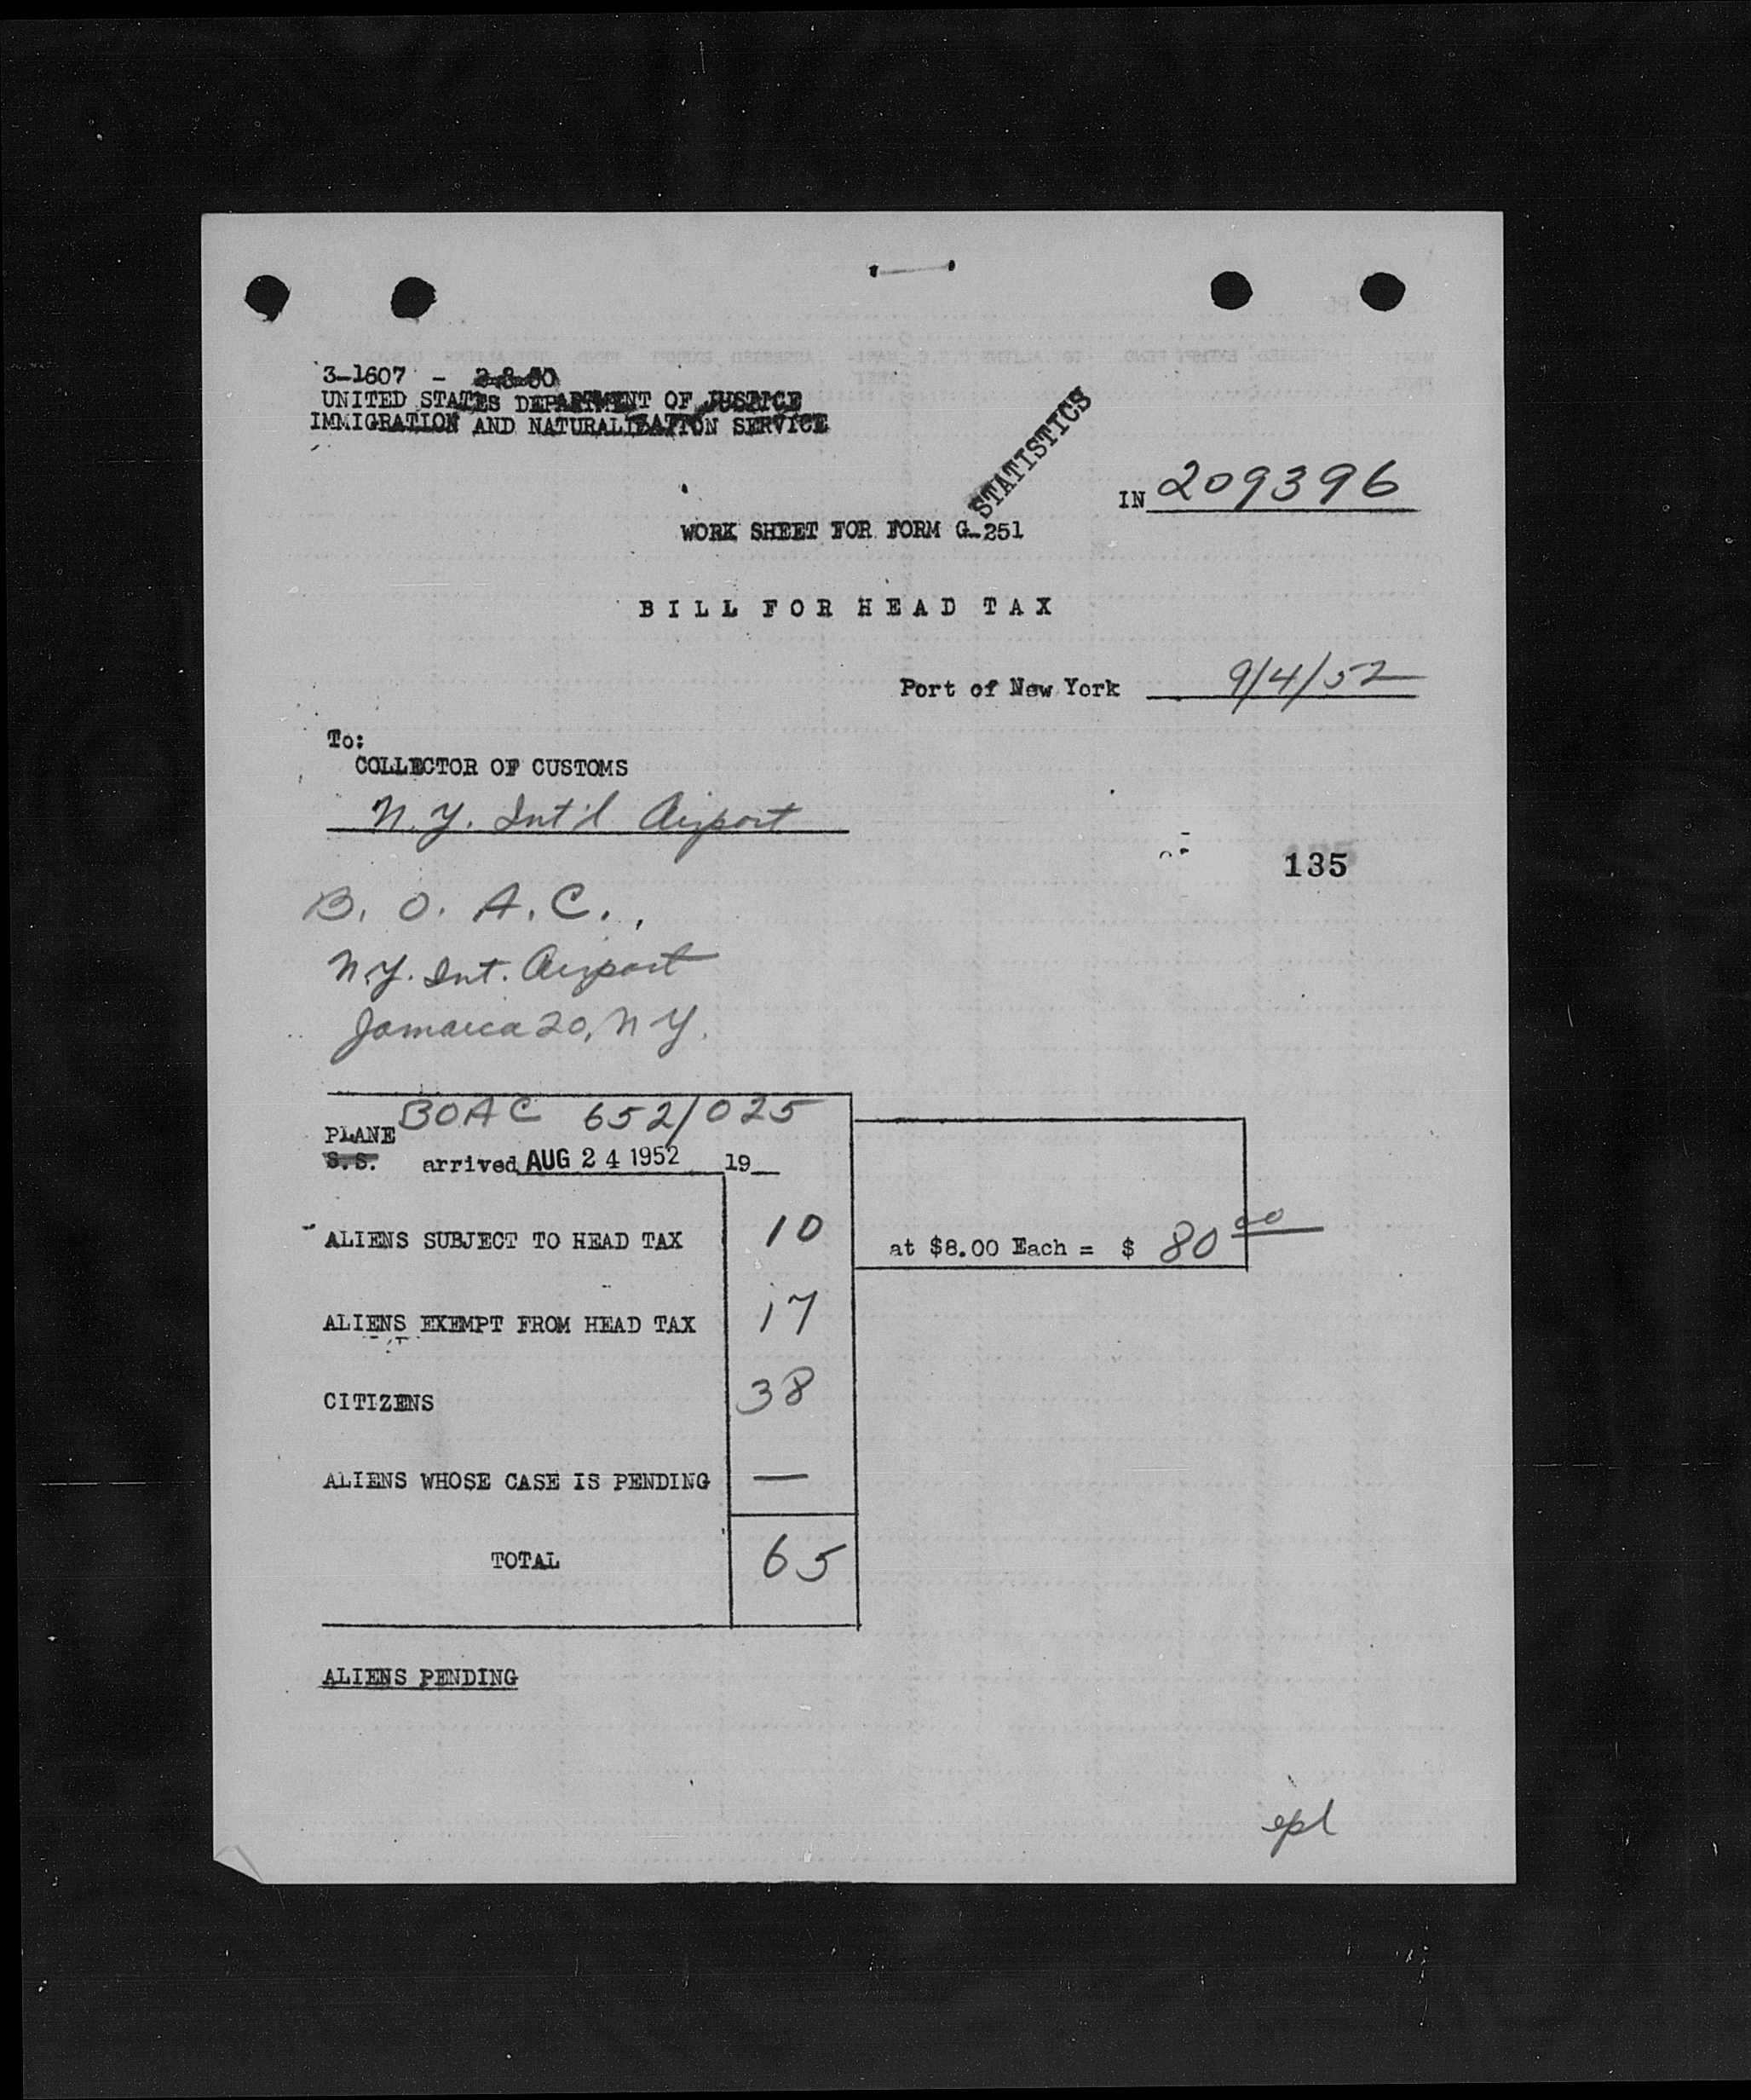 3-1607 - 2-8-50
UNITED STATES DEPARTMENT OF JUSTICE
IMMIGRATION AND NATURALIZATION SERVICE
STATISTICS
IN 209396
WORK SHEET FOR FORM G-251
BILL FOR HEAD TAX
Port of New York 9/4/52
To:
COLLECTOR OF CUSTOMS
N.Y. Int'l Airport
135
B. O. A. C.,
N.Y. Int. Airport
Jamaica 20, N Y.
BOAC 652/025
PLANE
S.S. arrived AUG 24 1952 19
ALIENS SUBJECT TO HEAD TAX 10 at $8.00 Each = $ 80 00
ALIENS EXEMPT FROM HEAD TAX 17
CITIZENS 38
ALIENS WHOSE CASE IS PENDING —
TOTAL 65
ALIENS PENDING
epl